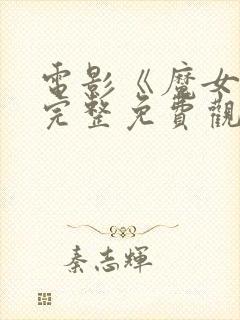 電影《魔女
完整免費觀
秦志輝